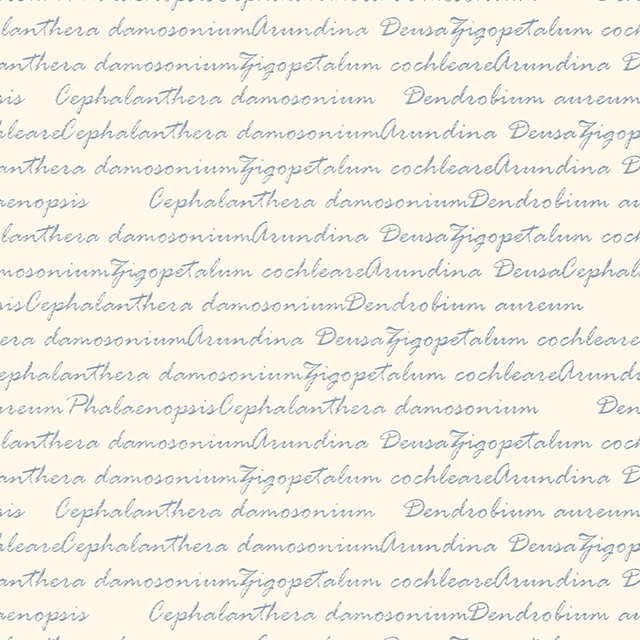 lanthera damosoniumArundina DeusaZigopetalum coch
anthera damosoniumZigopetalum cochleareArundina D
sis Cephalanthera damosonium Dendrobium aureum
hleareCephalanthera damosoniumArundina DeusaZigop
anthera damosoniumZigopetalum cochleareArundina D
aenopsis Cephalanthera damosoniumDendrobium au
lanthera damosoniumArundina DeusaZigopetalum coch
mosoniumZigopetalum cochleareArundina DeusaCephal
sisCephalanthera damosoniumDendrobium aureum
era damosoniumArundina DeusaZigopetalum cochleare
ephalanthera damosoniumZigopetalum cochleareArundi
ureumPhalaenopsisCephalanthera damosonium Den
lanthera damosoniumArundina DeusaZigopetalum coch
anthera damosoniumZigopetalum cochleareArundina D
sis Cephalanthera damosonium Dendrobium aureum
hleareCephalanthera damosoniumArundina DeusaZigop
anthera damosoniumZigopetalum cochleareArundina D
aenopsis Cephalanthera damosoniumDendrobium au